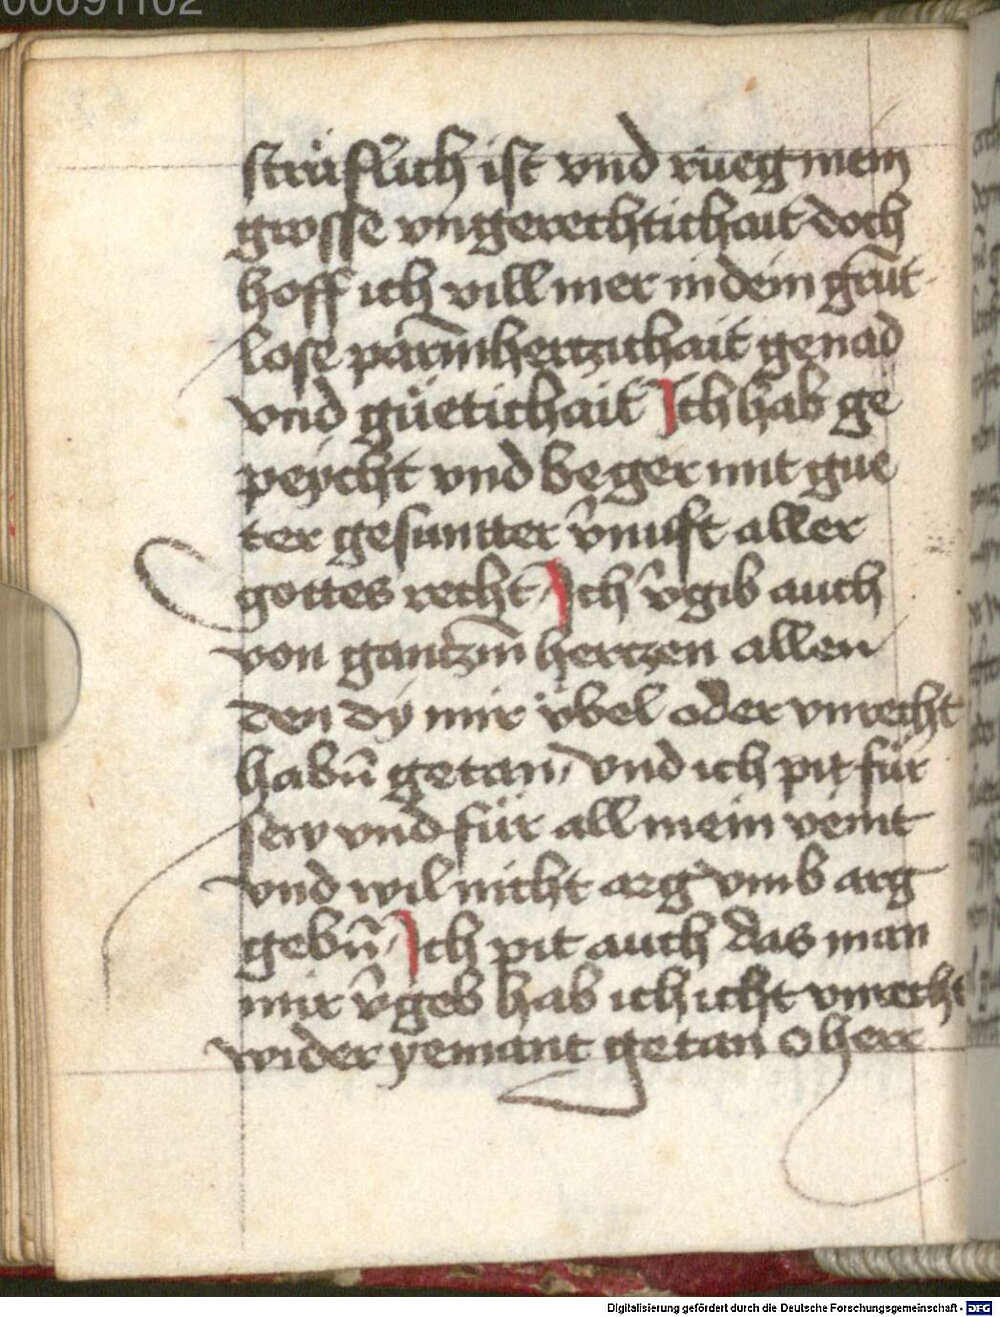 00091102
sträflich ist vnd rueg mein
grosse vngerechtichait doch
hoff ich vill mer in dein grūt
lose parm̄hertzichait genad
vnd güetichait Ich hab ge
peycht vnd beger mit gue
ter gesuntter v̄nuft aller
gottes recht Ich v̄gib auch
von gantzm̄ hertzen allen
den dÿ mir übel oder vnrecht
habn̄ getan, vnd ich pit für
sew vnd für all mein veint
vnd wil nicht arg vmb arg
gebn̄, Ich pit auch das man
mir v̄geb hab ich icht vnrecht
wider yemant getan O herr
Digitalisierung gefördert durch die Deutsche Forschungsgemeinschaft - DFG